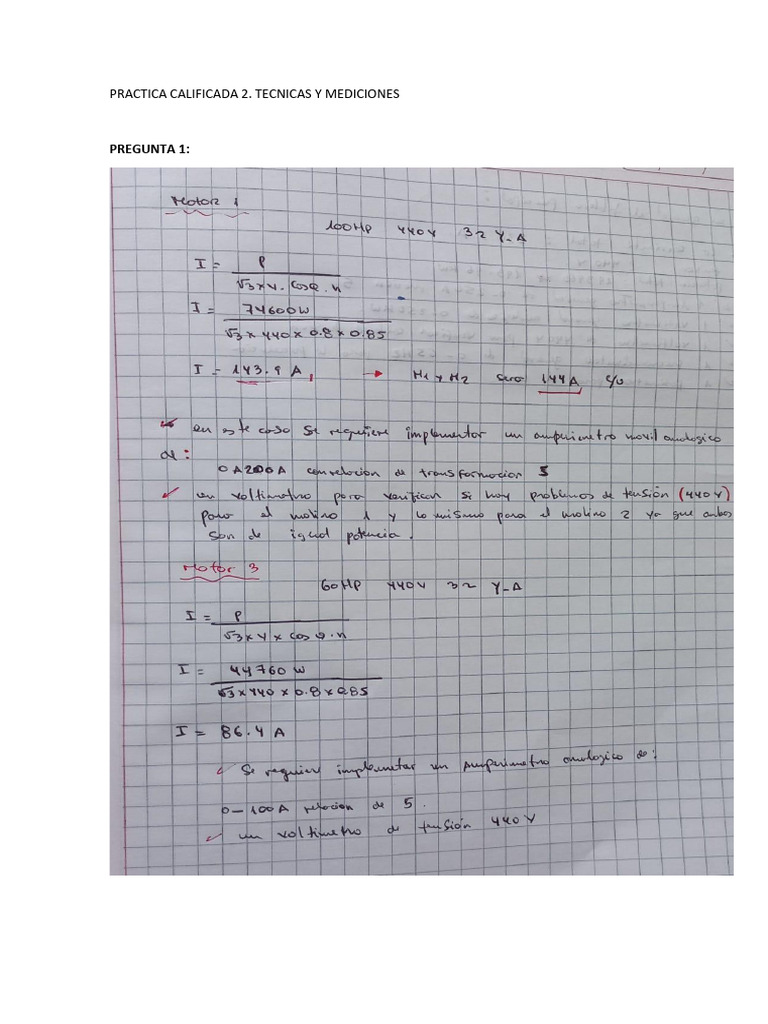 PRACTICA CALIFICADA 2. TECNICAS Y MEDICIONES
PREGUNTA 1:
Motor 1
100HP 440V 3~ Y-Δ
I = P
√3 x V. cosφ. n
I = 74600W
√3 x 440 x 0.8 x 0.85
I = 143.9 A, → M1 y M2 sera 144A c/u
en este caso se requiere implementar un amperimetro movil analogico
de:
0 A 200A con relacion de transformacion 5
✓ un voltimetro para verificar si hay problemas de tensión (440V)
para el molino 1 y lo mismo para el molino 2 ya que ambos
son de igual potencia.
Motor 3
60HP 440V 3~ Y-Δ
I = P
√3 x V x cos φ. n
I = 44760 W
√3 x 440 x 0.8 x 0.85
I = 86.4 A
✓ Se requiere implementar un Amperimetro analogico de:
0-100A relacion de 5.
✓ un voltimetro de tensión 440V